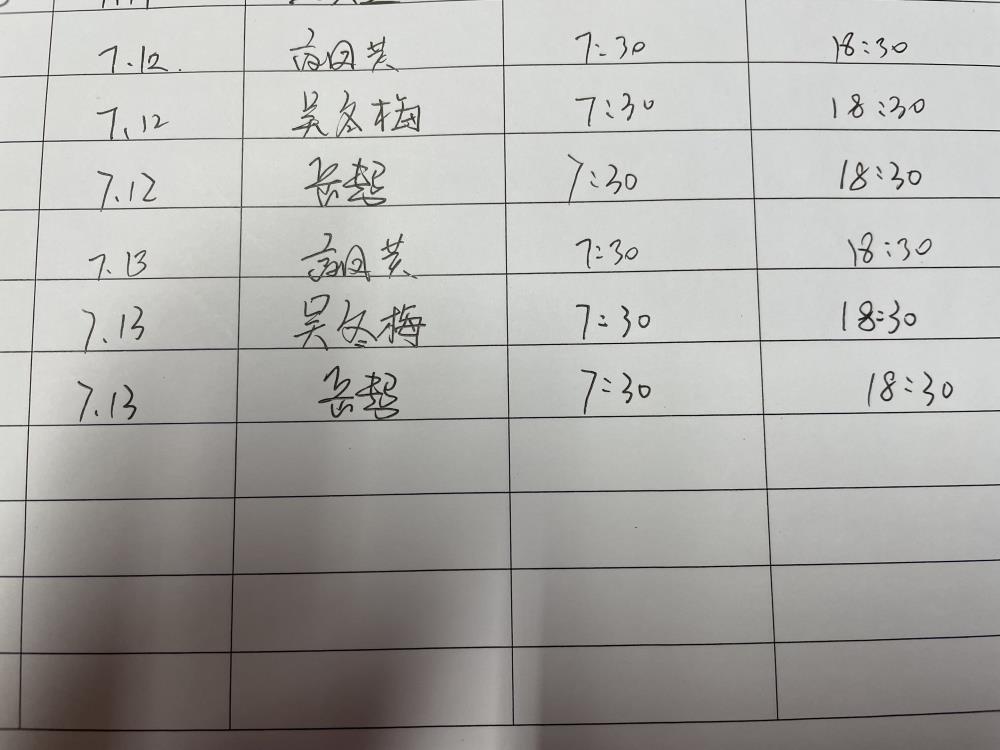 7.12 高国英 7:30 18:30
7.12 吴冬梅 7:30 18:30
7.12 岳超 7:30 18:30
7.13 高国英 7:30 18:30
7.13 吴冬梅 7:30 18:30
7.13 岳超 7:30 18:30